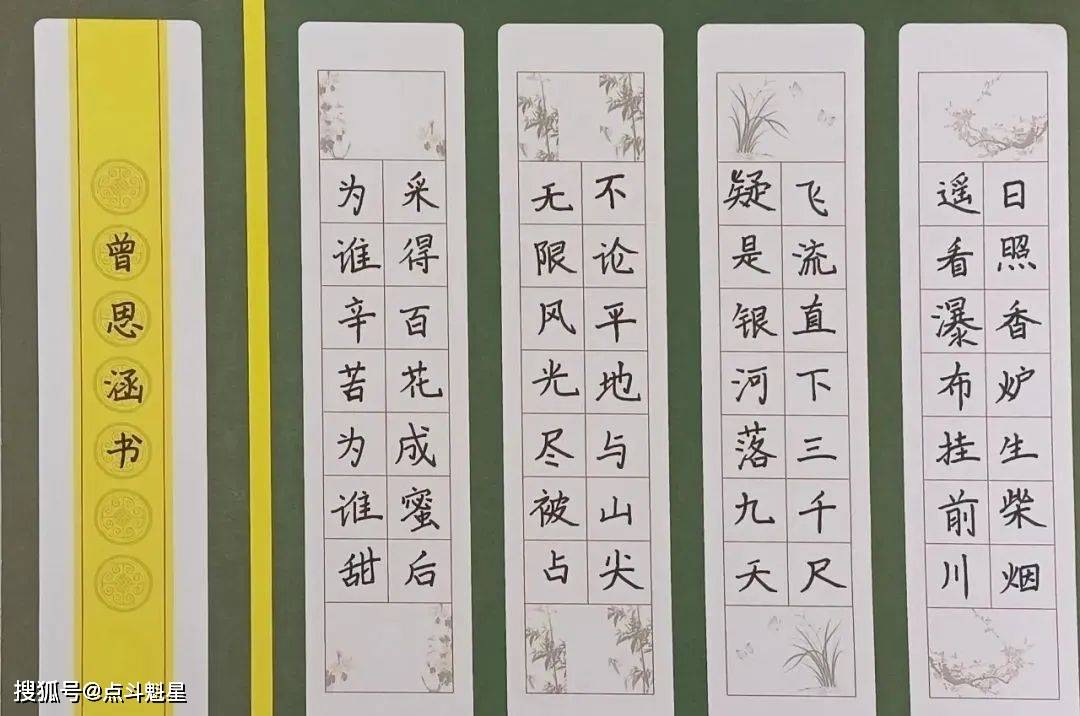 日照香炉生柴烟
遥看瀑布挂前川
飞流直下三千尺
疑是银河落九天
不论平地与山尖
无限风光尽被占
采得百花成蜜后
为谁辛苦为谁甜
曾思涵书
搜狐号@点斗魁星